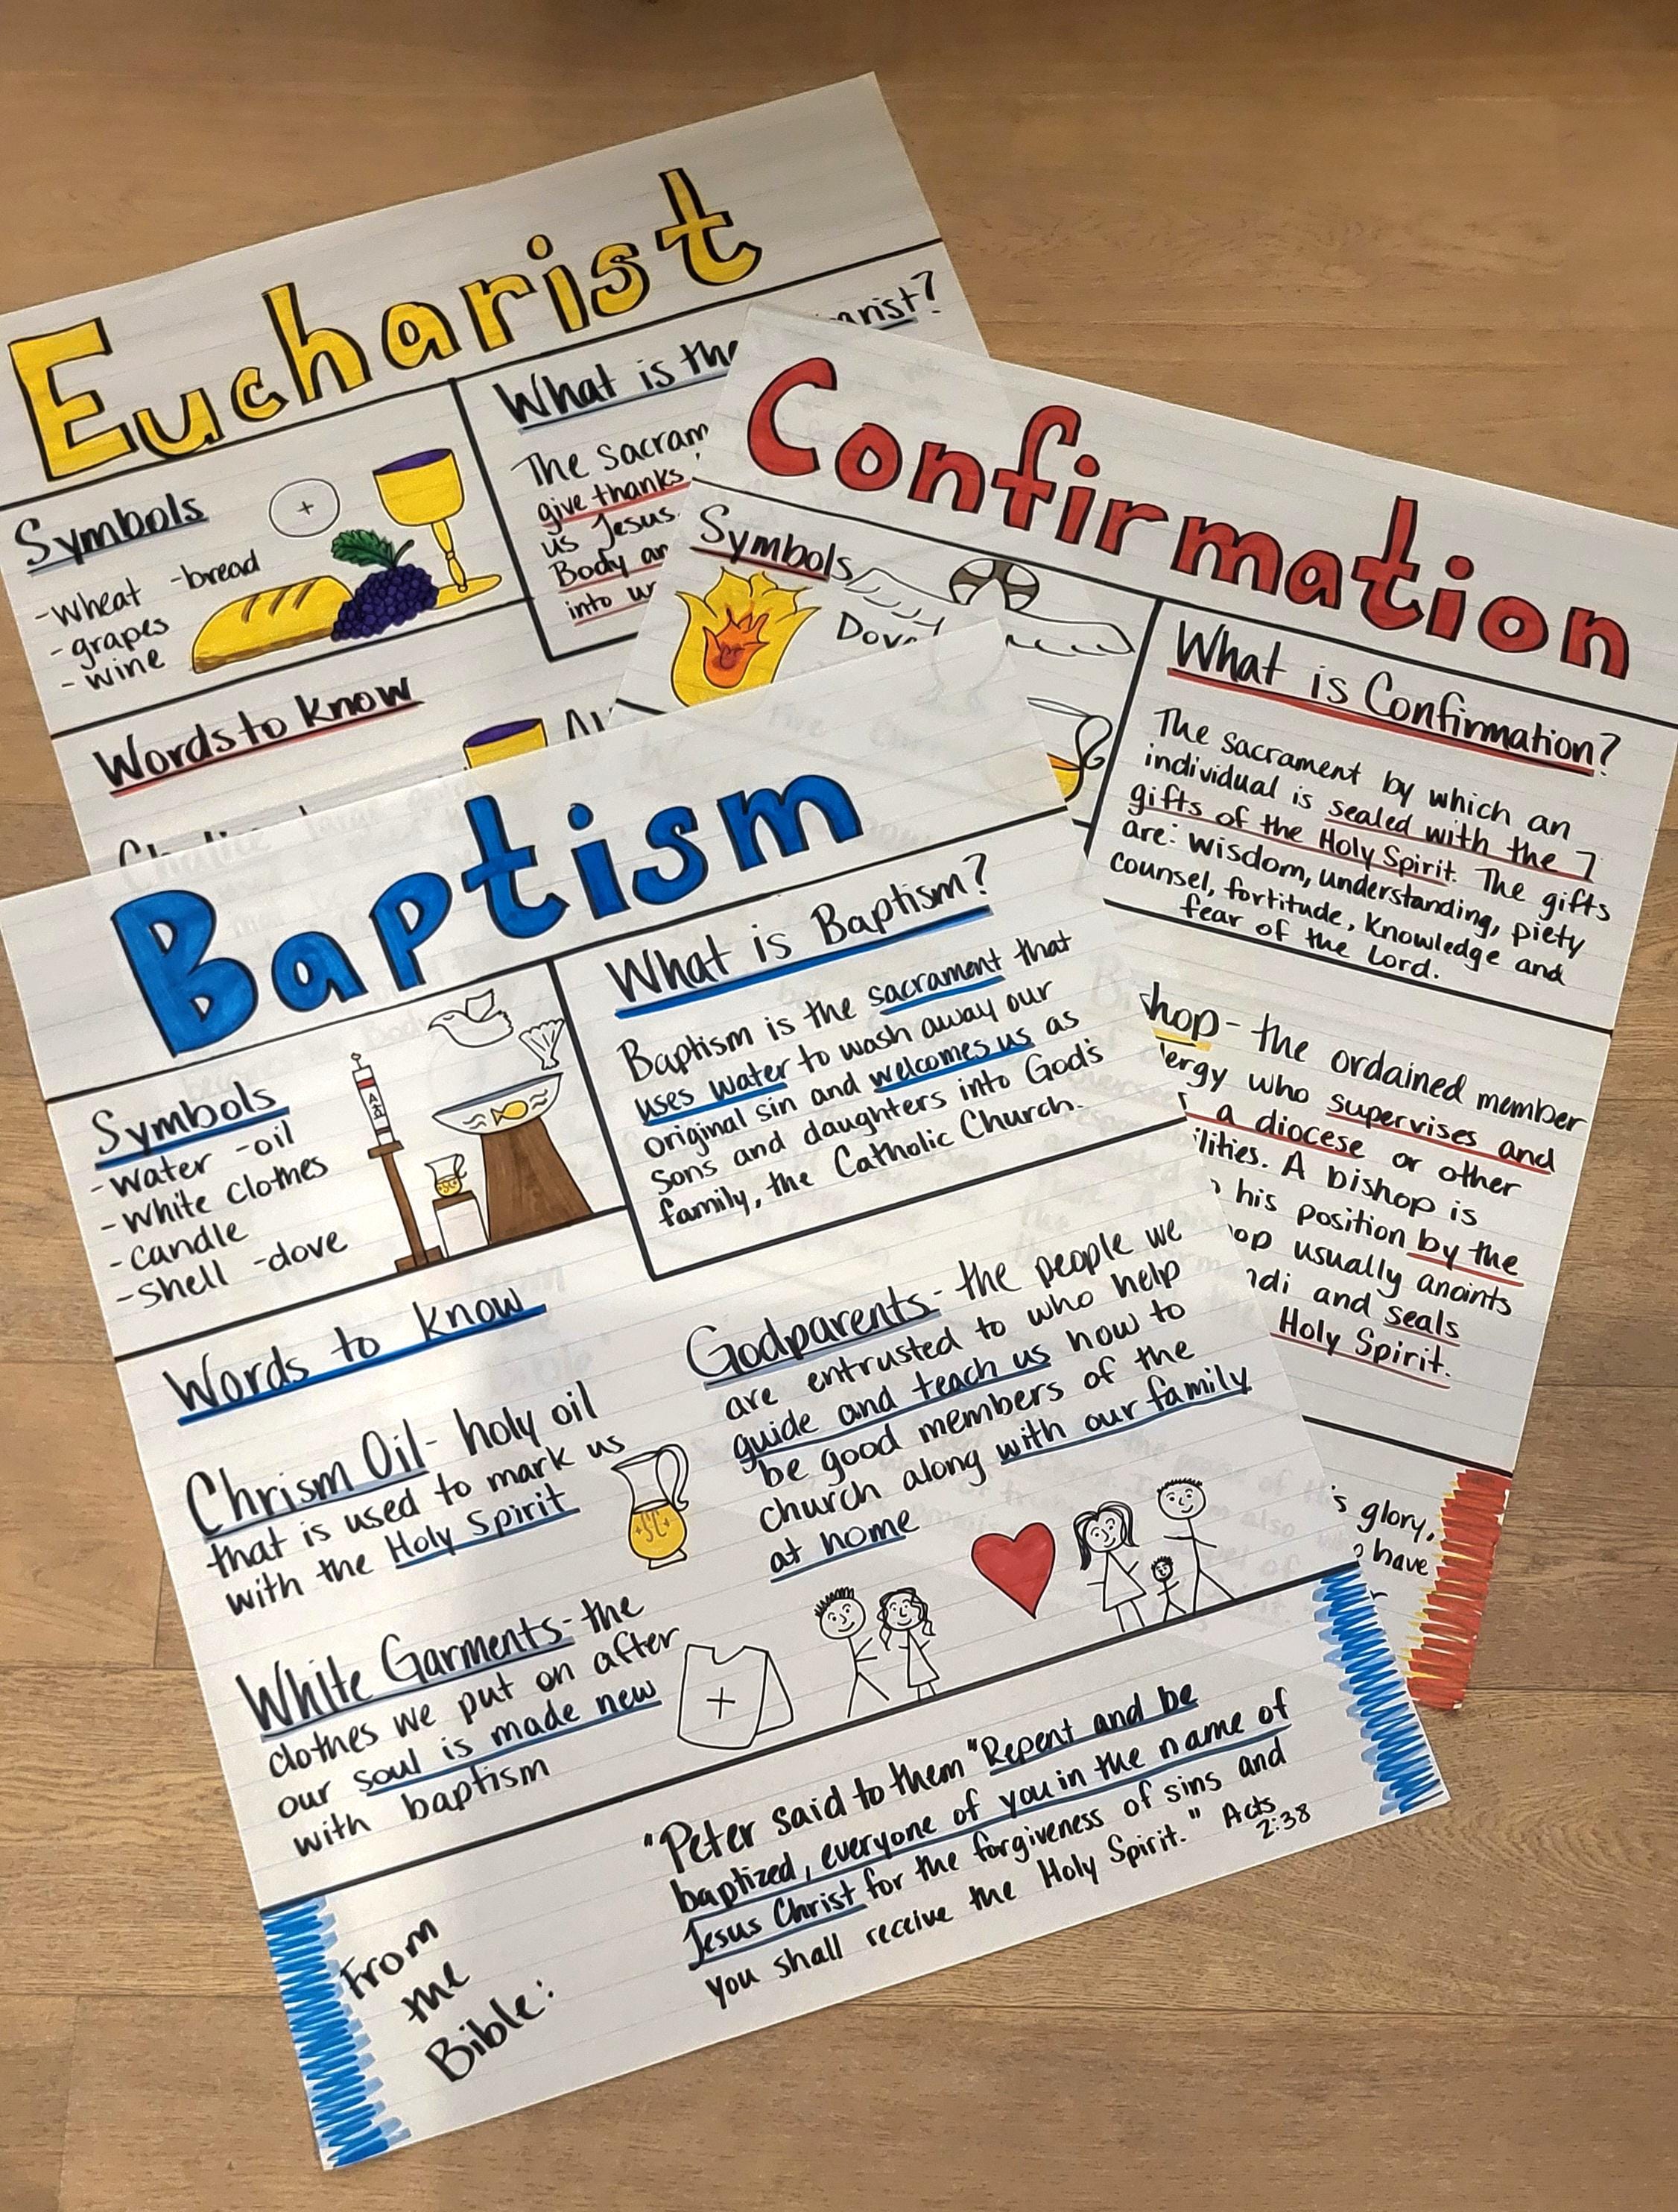 Eucharist
Symbols
-wheat -bread
-grapes
-wine
What is the
The Sacram
give thanks
us Jesus
Body an
into
Words to know
Confirmation
Symbols
Dove
Fire
What is Confirmation?
The sacrament by which an
individual is sealed with the 7
gifts of the Holy Spirit. The gifts
are: wisdom, understanding, piety
counsel, fortitude, knowledge and
fear of the Lord.
shop- the ordained member
lergy who supervises and
a diocese or other
ilities. A bishop is
his position by the
op usually anoints
ndi and seals
Holy Spirit.
's glory,
have
Baptism
Symbols
-water -oil
-white clothes
-candle
-shell -dove
What is Baptism?
Baptism is the sacrament that
uses water to wash away our
original sin and welcomes us as
sons and daughters into God's
family, the Catholic Church.
Words to know
Chrism Oil- holy oil
that is used to mark us
with the Holy Spirit
White Garments- the
clothes we put on after
our soul is made new
with baptism
Godparents- the people we
are entrusted to who help
guide and teach us how to
be good members of the
church along with our family
at home
SC
From
the
Bible:
"Peter said to them "Repent and be
baptized, everyone of you in the name of
Jesus Christ for the forgiveness of sins and
you shall receive the Holy Spirit." Acts
2:38